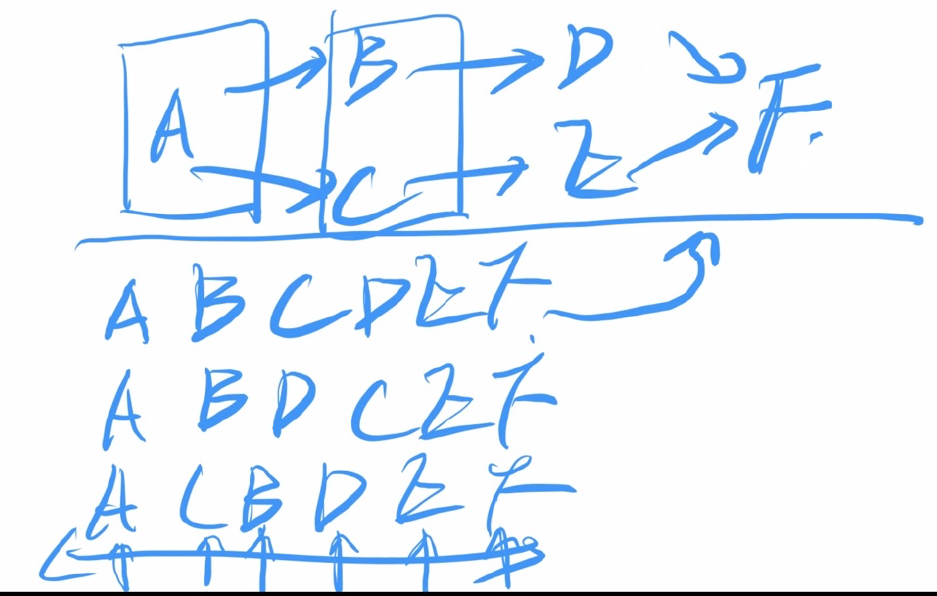 A B D
C E F.
A B C D E F.
A B D C E F
A C B D E F